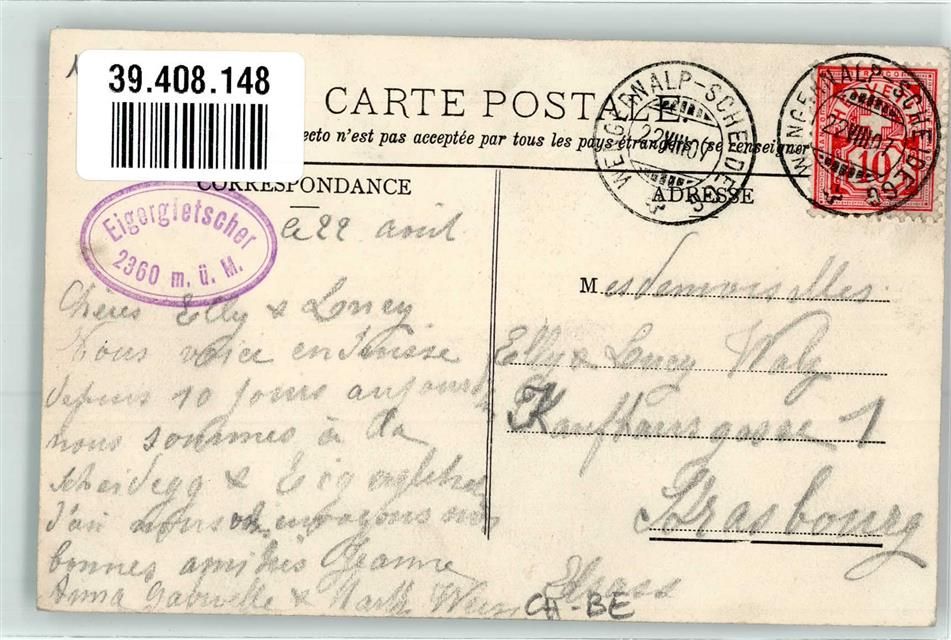 39.408.148
CARTE POSTALE.
ecto n'est pas acceptée par tous les pays étrangers, se renseigner
WENGERNALP-SCHEIDEGG
22.VIII.07
WENGERNALP-SCHEIDEGG
22.VIII.07
10
CORRESPONDANCE
ADRESSE
Eigergletscher
2360 m. ü. M.
le 22 août
Chères Elly & Loucy
Nous voici en Suisse
depuis 10 jours aujourd
nous sommes à la
Scheidegg & Eigergletscher
d'où nous envoyons nos
bonnes amitiés Jeanne
Anna Gabrielle & Marth
Mesdemoiselles
Elly & Loucy Walz
Kaufhausgasse 1
Strasbourg
Elsass
CH-BE